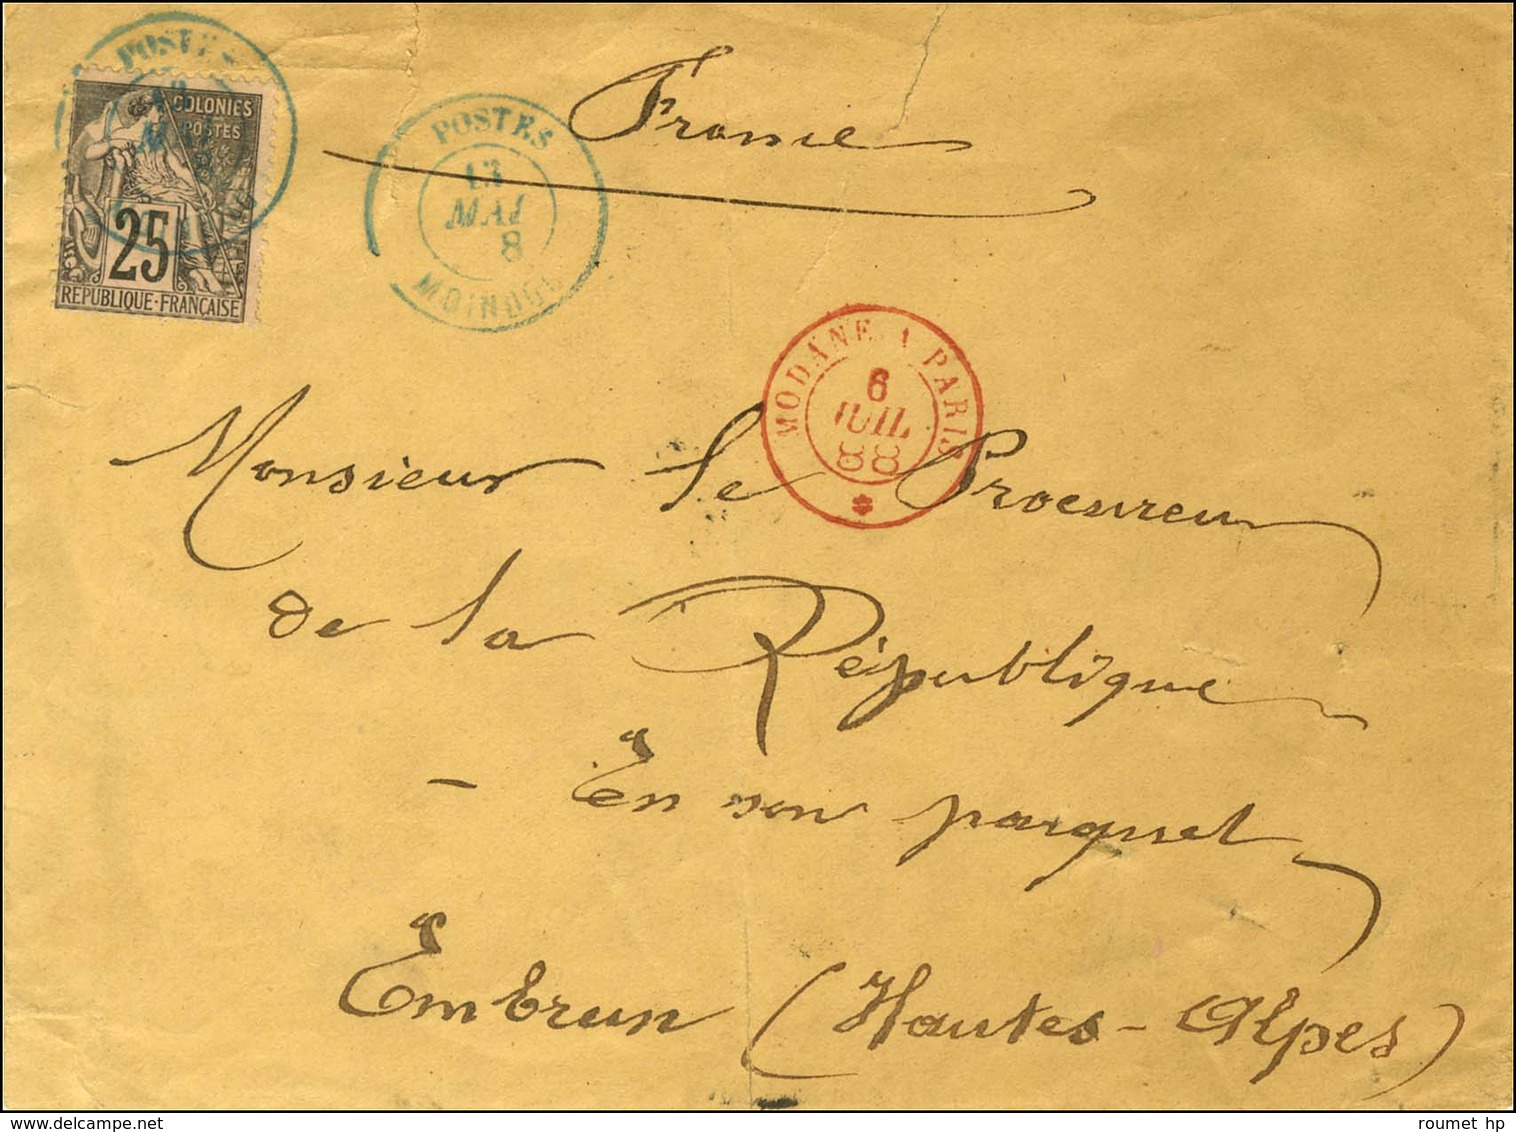 POSTES
COLONIES
POSTES
25
REPUBLIQUE·FRANÇAISE
POSTES
13
MAI
8
MOINDOU
France
MODANE A PARIS
6
JUIL
88
Monsieur le Procureur
de la République
- En son parquet
Embrun (Hautes-Alpes)
roumet hp